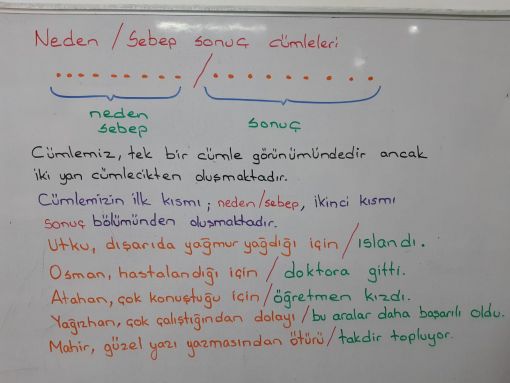 Neden / Sebep sonuç cümleleri
......... / .........
neden sebep
sonuç
Cümlemiz, tek bir cümle görünümündedir ancak
iki yan cümlecikten oluşmaktadır.
Cümlemizin ilk kısmı; neden/sebep, ikinci kısmı
sonuç bölümünden oluşmaktadır.
Utku, dışarıda yağmur yağdığı için / ıslandı.
Osman, hastalandığı için / doktora gitti.
Atahan, çok konuştuğu için / öğretmen kızdı.
Yağızhan, çok çalıştığından dolayı / bu aralar daha başarılı oldu.
Mahir, güzel yazı yazmasından ötürü / takdir topluyor.